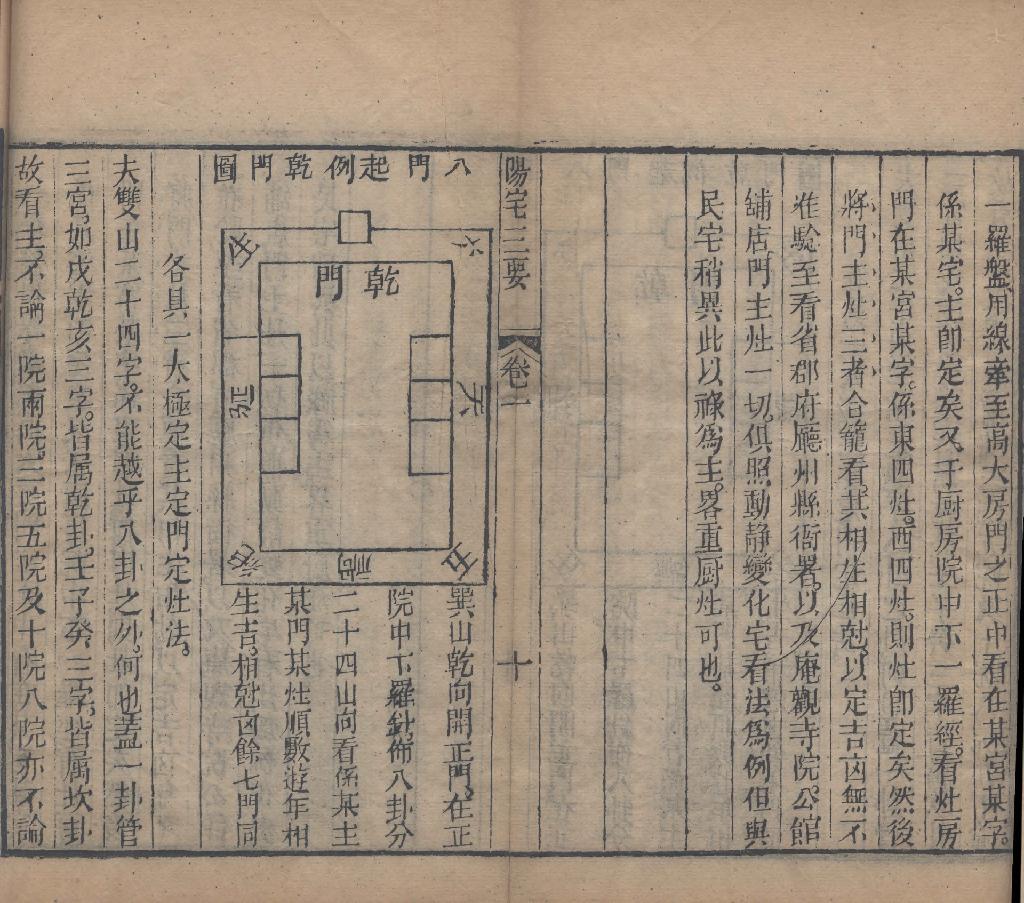 一羅盤用線牽至高大房門之正中看在某宮某字。
係某宅。主卽定矣又于厨房院中下一羅經。看灶房
門在某宮某字。係東四灶。西四灶。則灶卽定矣然後
將門主灶三者合籠看。其相生相尅。以定吉凶無不
准驗至看省郡府廳州縣衙署。以及庵觀寺院。公館
舖店門主灶一切。俱照動靜變化宅看法爲例但與
民宅稍異此以祿爲主。畧重厨灶可也。
陽宅三要
卷一
十
八門起例乾門圖
乾門
六
天
五
禍
絶
延
生
巽山乾向開正門。在正
院中下羅針。佈八卦分
二十四山向看係某主
某門某灶順數遊年相
生吉。相尅凶餘七門同
各具一太極定主定門定灶法。
夫雙山二十四字。不能越乎八卦之外。何也蓋一卦管
三宮。如戌乾亥三字。皆属乾卦。壬子癸三字。皆属坎卦
故看主。不論一院兩院。三院五院及十院八院亦不論